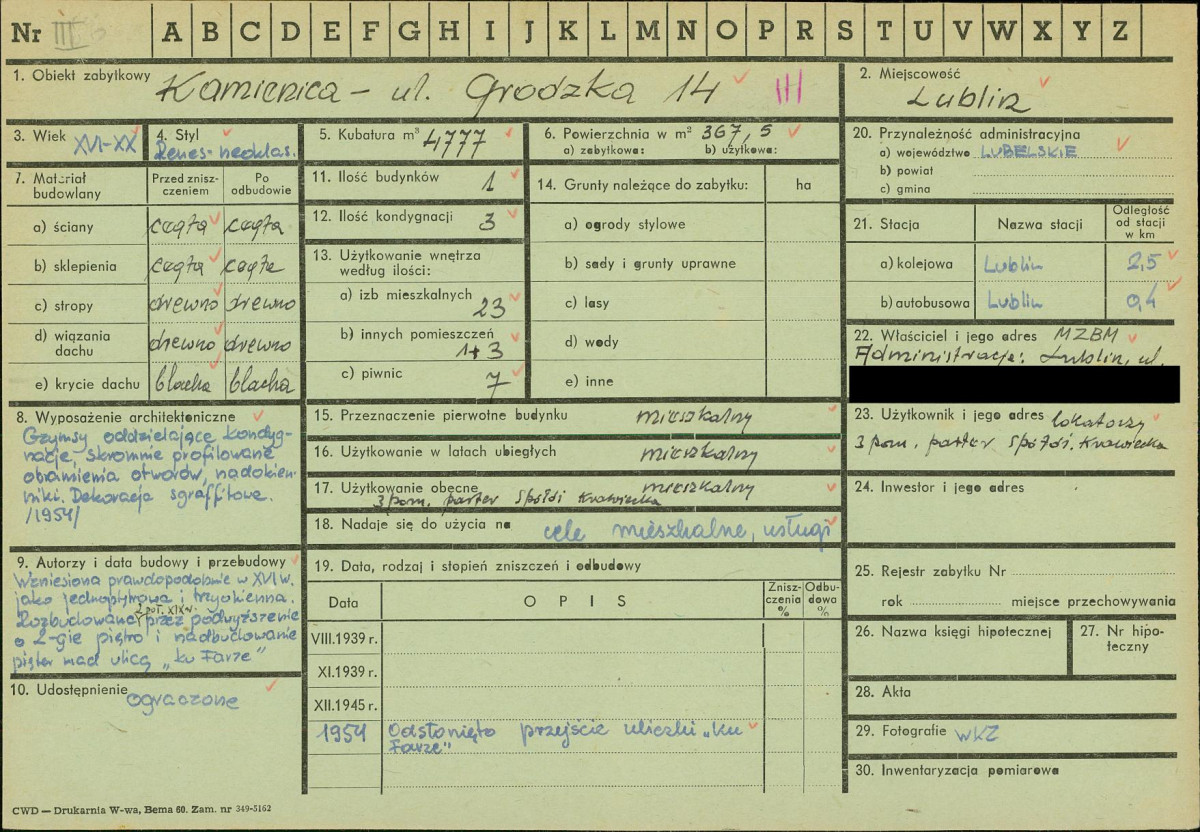 Nr III A B C D E F G H I J K L M N O P R S T U V W X Y Z
1. Obiekt zabytkowy Kamienica - ul. Grodzka 14 III
2. Miejscowość
Lublin
3. Wiek XVI-XX
4. Styl
Renes-neoklas.
5. Kubatura m³ 4777
6. Powierzchnia w m² 367,5
a) zabytkowa: b) użytkowa:
7. Materiał budowlany
Przed zniszczeniem
Po odbudowie
a) ściany cegła cegła
b) sklepienia cegła cegła
c) stropy drewno drewno
d) wiązania dachu drewno drewno
e) krycie dachu blacha blacha
8. Wyposażenie architektoniczne
Gzymsy oddzielające kondyg-
nacje, skromnie profilowane
obramienia otworów, nadokien-
niki. Dekoracja sgraffitowa.
/1954/
9. Autorzy i data budowy i przebudowy
Wzniesiona prawdopodobnie w XVI w.
jako jednopiętrowa i trzyokienna.
2 poł. XIX w.
Rozbudowana przez podwyższenie
o 2-gie piętro i nadbudowanie
pięter nad ulicą „ku Farze"
10. Udostępnienie
ograczone
11. Ilość budynków 1
12. Ilość kondygnacji 3
13. Użytkowanie wnętrza
według ilości:
a) izb mieszkalnych
23
b) innych pomieszczeń
1+3
c) piwnic 7
14. Grunty należące do zabytku: ha
a) ogrody stylowe
b) sady i grunty uprawne
c) lasy
d) wody
e) inne
15. Przeznaczenie pierwotne budynku mieszkalny
16. Użytkowanie w latach ubiegłych mieszkalny
17. Użytkowanie obecne mieszkalny
3 pom. parter Spółdź Krawiecka
18. Nadaje się do użycia na cele mieszkalne, usługi
19. Data, rodzaj i stopień zniszczeń i odbudowy
Data
O P I S
Zniszczenia %
Odbudowa %
VIII.1939 r.
XI.1939 r.
XII.1945 r.
1954 Odsłonięto przejście uliczki „ku
Farze"
20. Przynależność administracyjna
a) województwo LUBELSKIE
b) powiat
c) gmina
21. Stacja
Nazwa stacji
Odległość od stacji w km
a) kolejowa Lublin 2,5
b) autobusowa Lublin 0,4
22. Właściciel i jego adres MZBM
Administracja: Lublin, ul.
23. Użytkownik i jego adres lokatorzy
3 pom. parter Spółdź. Krawiecka
24. Inwestor i jego adres
25. Rejestr zabytku Nr
rok miejsce przechowywania
26. Nazwa księgi hipotecznej
27. Nr hipo-
teczny
28. Akta
29. Fotografie WKZ
30. Inwentaryzacja pomiarowa
CWD — Drukarnia W-wa, Bema 60. Zam. nr 349-5162